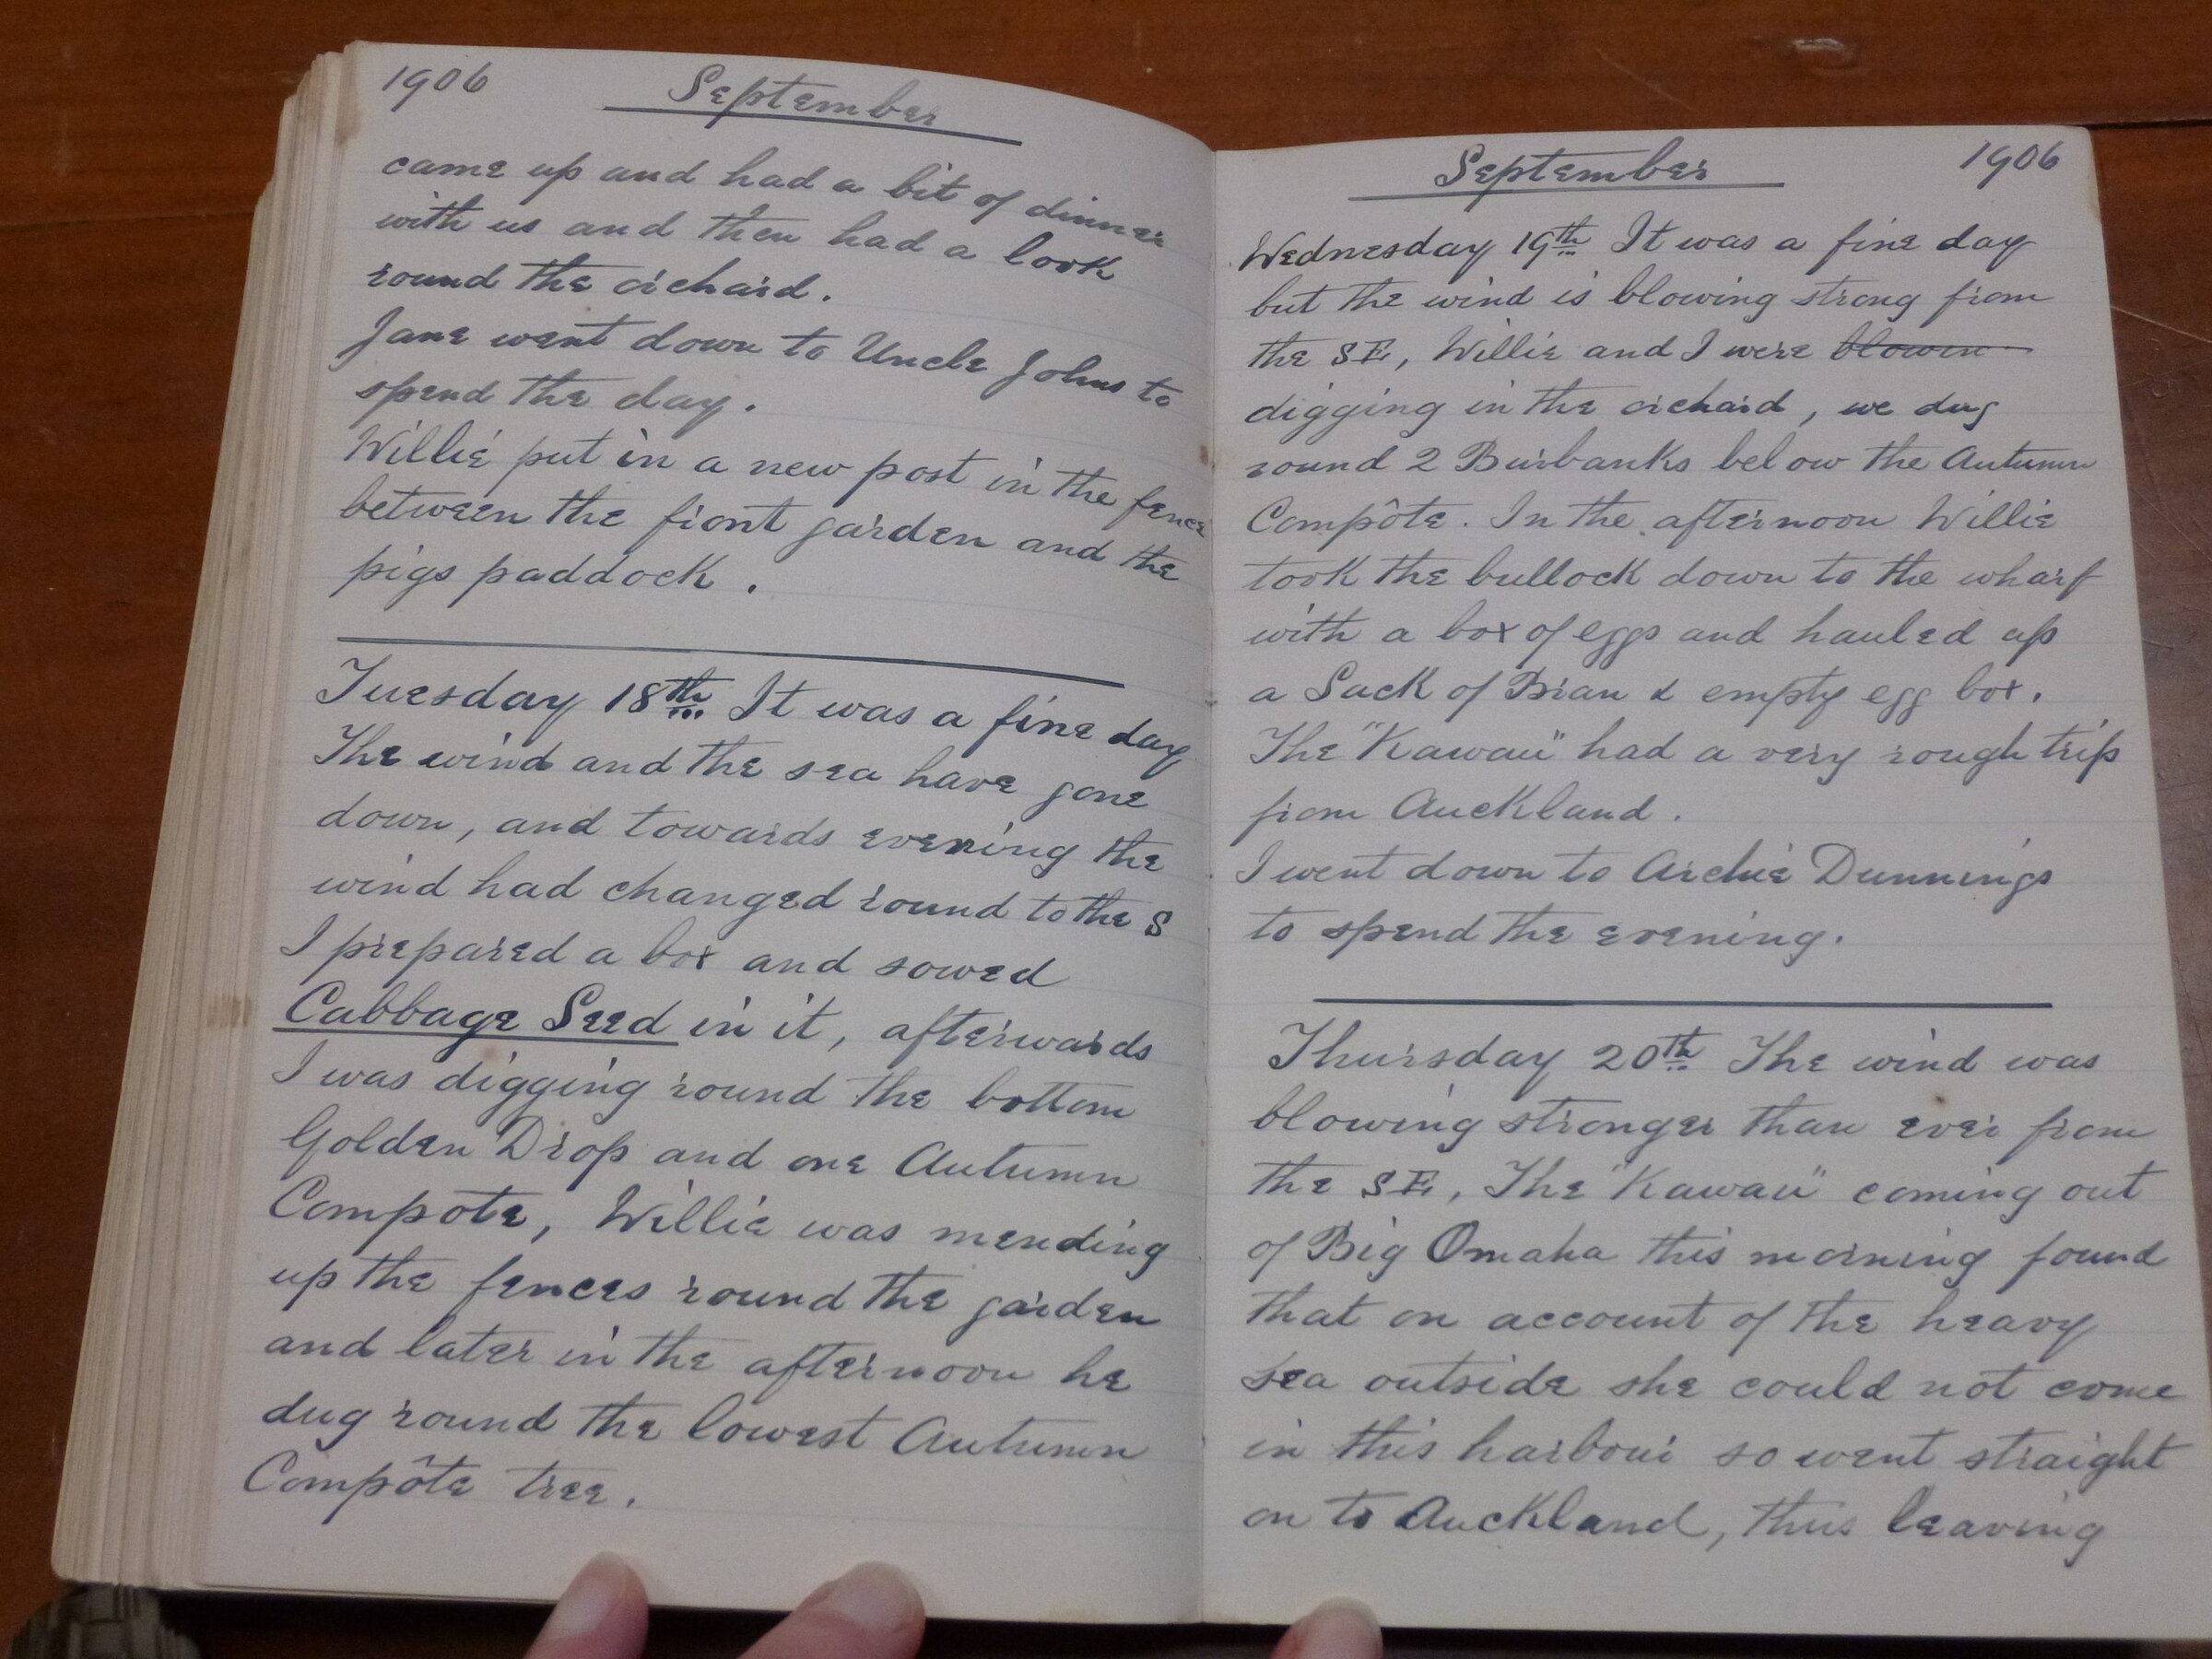 1906 September
came up and had a bit of dinner
with us and then had a look
round the orchard.
Jane went down to Uncle Johns to
spend the day.
Willie put in a new post in the fence
between the front garden and the
pigs paddock.
Tuesday 18th It was a fine day
The wind and the sea have gone
down, and towards evening the
wind had changed round to the S
I prepared a box and sowed
Cabbage Seed in it, afterwards
I was digging round the bottom
Golden Drop and one Autumn
Compôte, Willie was mending
up the fences round the garden
and later in the afternoon he
dug round the lowest Autumn
Compôte tree.
September 1906
Wednesday 19th It was a fine day
but the wind is blowing strong from
the SE, Willie and I were blowen
digging in the orchard, we dug
round 2 Burbanks below the Autumn
Compôte. In the afternoon Willie
took the bullock down to the wharf
with a box of eggs and hauled up
a Sack of Bran & empty egg box.
The "Kawau" had a very rough trip
from Auckland.
I went down to Archie Dunnings
to spend the evening.
Thursday 20th The wind was
blowing stronger than ever from
the SE, The "Kawau" coming out
of Big Omaha this morning found
that on account of the heavy
sea outside she could not come
in this harbour so went straight
on to Auckland, thus leaving